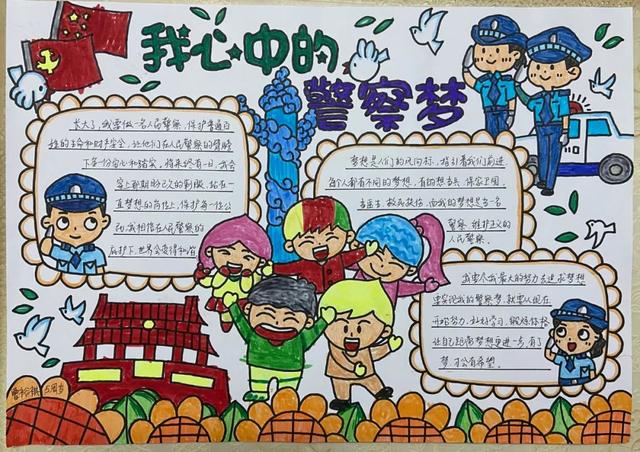 我心中的
警察梦
长大了,我要做一名人民警察,保护普通百
姓的生命和财产安全,让他们在人民警察的臂膀
下多一份安心和踏实,将来终有一日,我会
穿上那期盼已久的制服,站在一
直梦想的岗位上,保护每一位公
民,我相信在人民警察的
庇护下,世界会变得和谐
梦想是人们的风向标,指引着我们前进.
每个人都有不同的梦想,有的想当兵,保家卫国,
当医生,救死扶伤,而我的梦想是当一名
警察,维护正义的
人民警察.
我要尽我最大的努力去追求梦想
要实现我的警察梦,就要从现在
开始努力,好好学习,锻炼身体
让自己距离梦想更进一步,有了
梦,才会有希望.